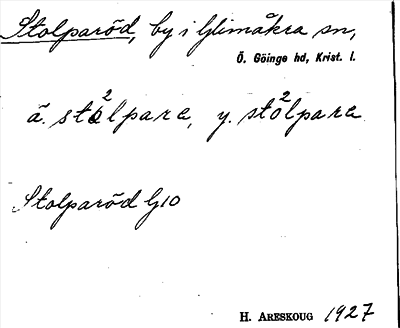 Stolparöd, by i Glimåkra sn,
Ö. Göinge hd, Krist. l.
ä. stålpara, y. stålpara
Stolparöd G10
H. ARESKOUG 1927